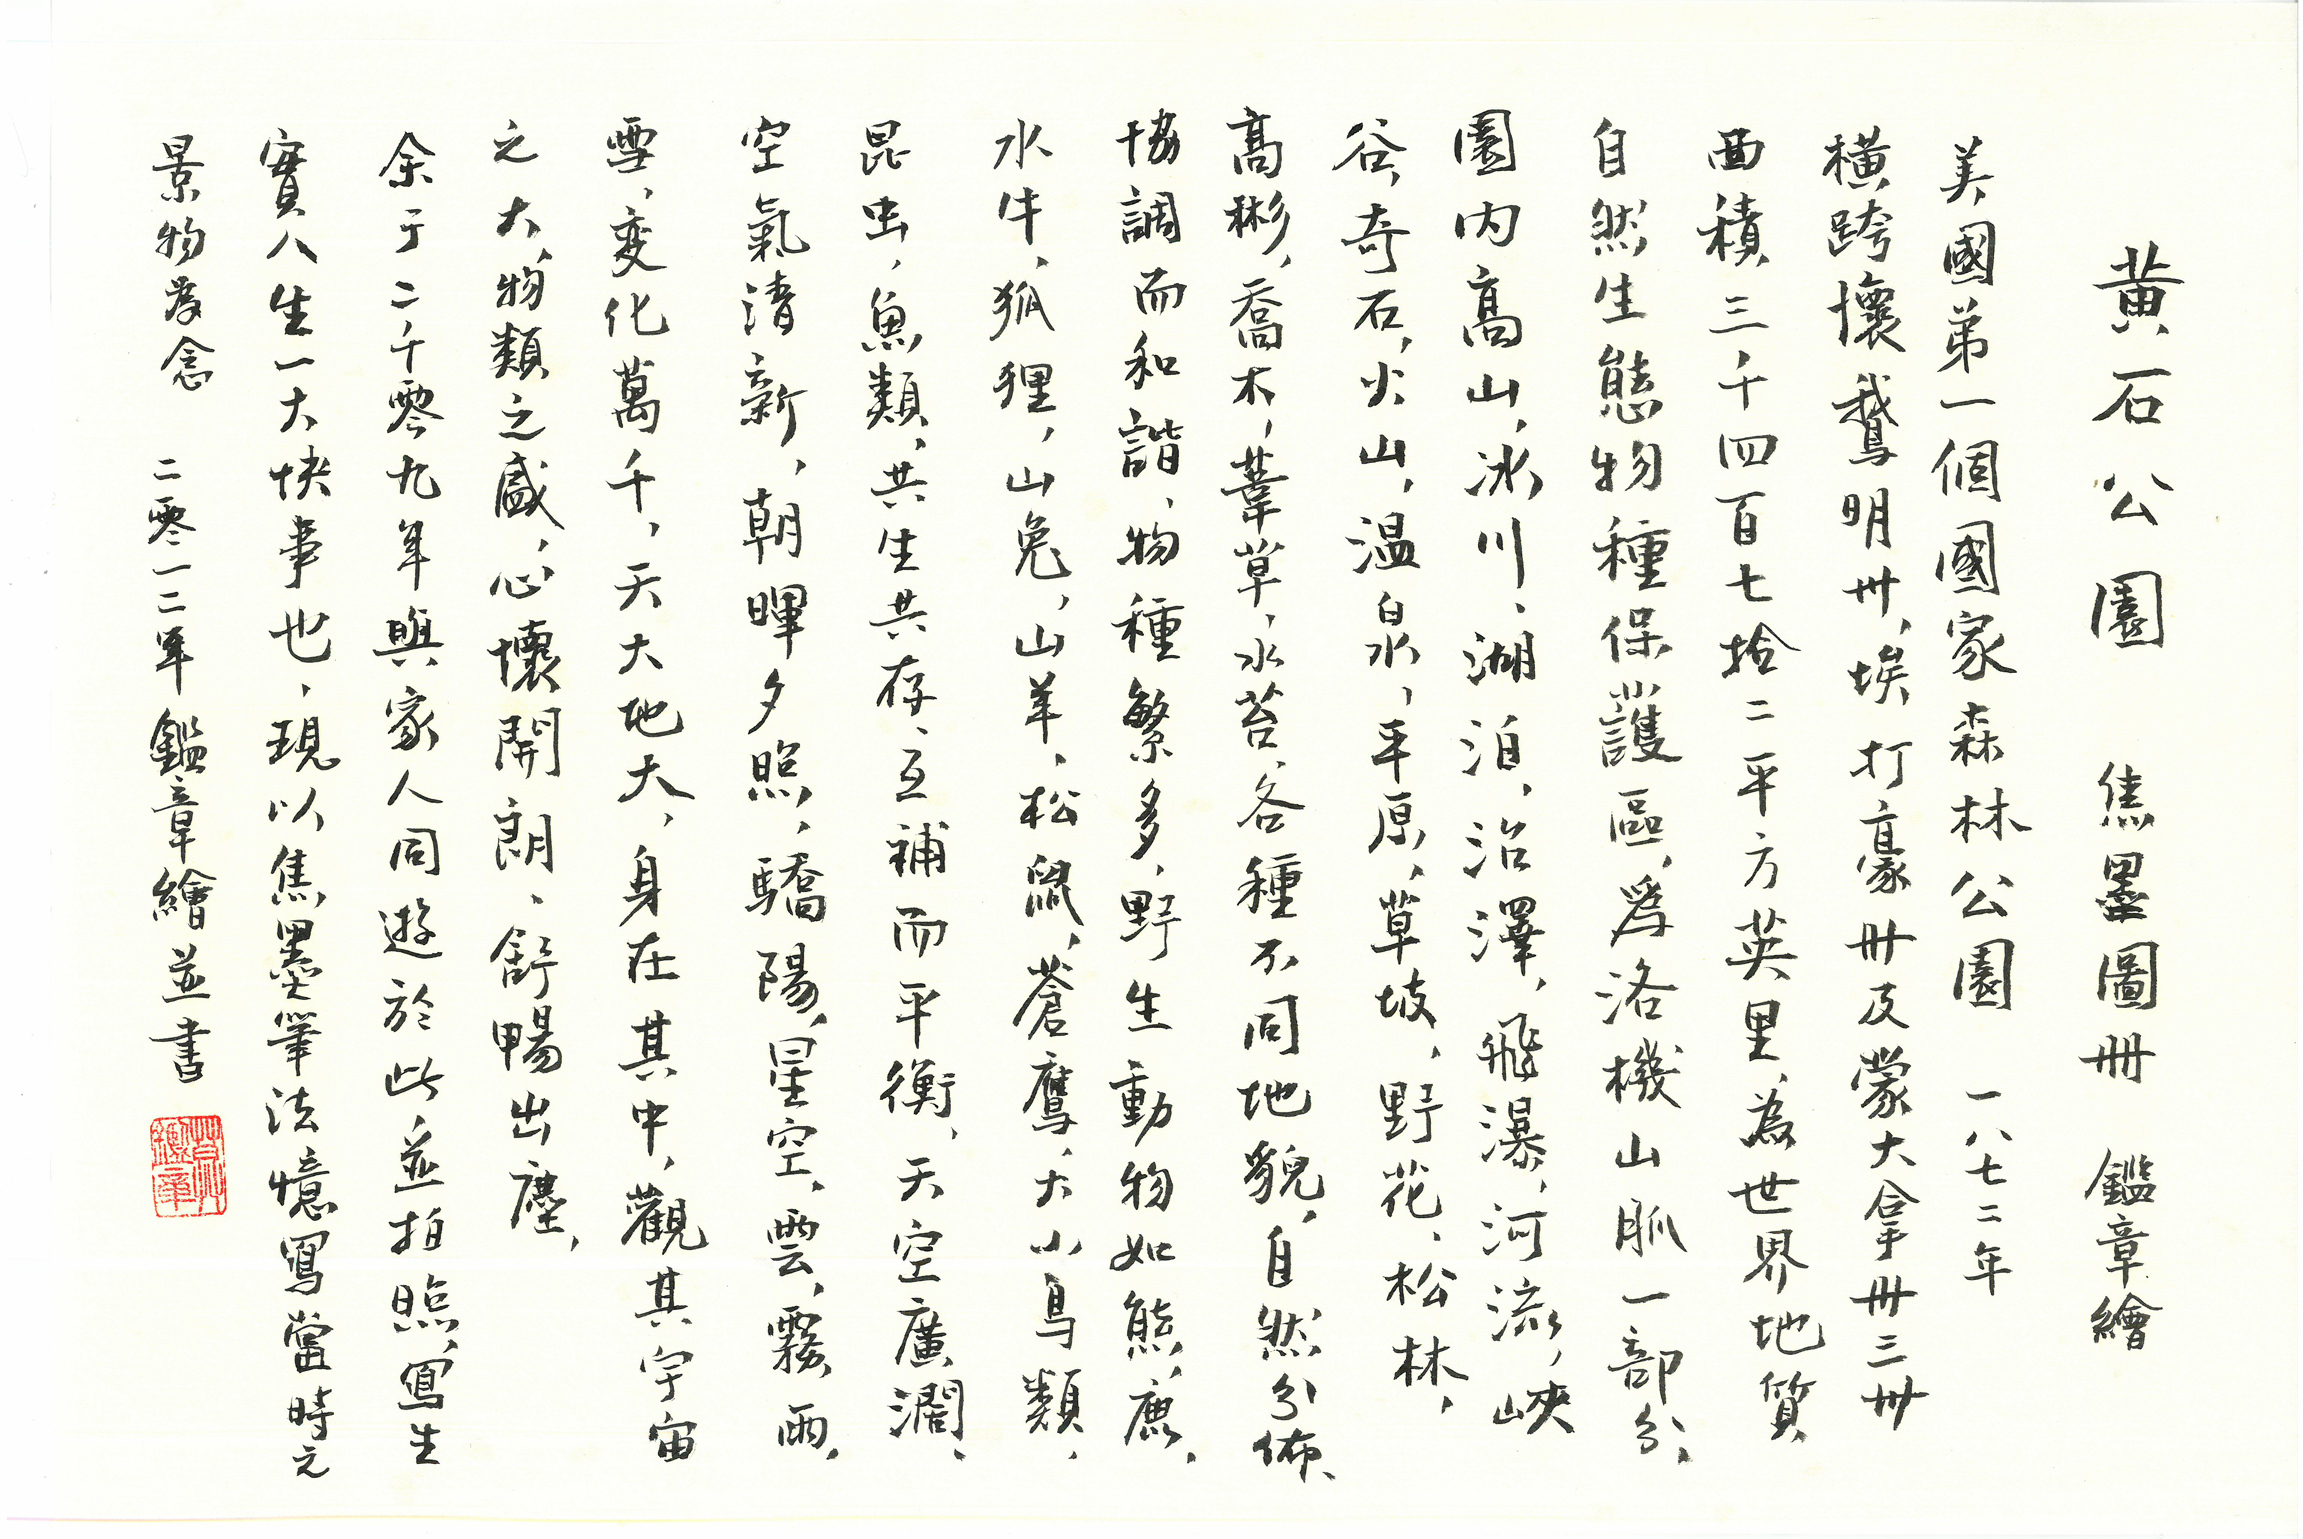 黄石公園 焦墨圖冊 鑑章繪
美國第一個國家森林公園 一八七二年
橫跨懷鵝明卅,埃打豪卅及蒙大拿卅三卅
面積三千四百七拾二平方英里,為世界地質
自然生態物種保護區,爲洛機山脈一部分,
園内高山,冰川,湖泊,沼澤,飛瀑,河流,峽
谷,奇石,火山,温泉,平原,草坡,野花,松林,
高彬,喬木,葦草,水苔,各種不同地貌,自然分佈,
協調而和諧,物種繁多,野生動物如熊,鹿,
水牛,狐狸,山兔,山羊,松鼠,蒼鷹,大小鳥類,
昆虫,魚類,共生共存,互補而平衡,天空廣濶,
空氣清新,朝暉夕照,驕陽,星空,雲,霧,雨,
雪,変化萬千,天大地大,身在其中,觀其宇宙
之大,物類之盛,心懷開朗,舒暢出塵,
余于二千零九年與家人同遊於此,並拍照,寫生
實人生一大快事也,現以焦墨筆法憶寫當時元
景物為念 二零一二年 鑑章繪並書